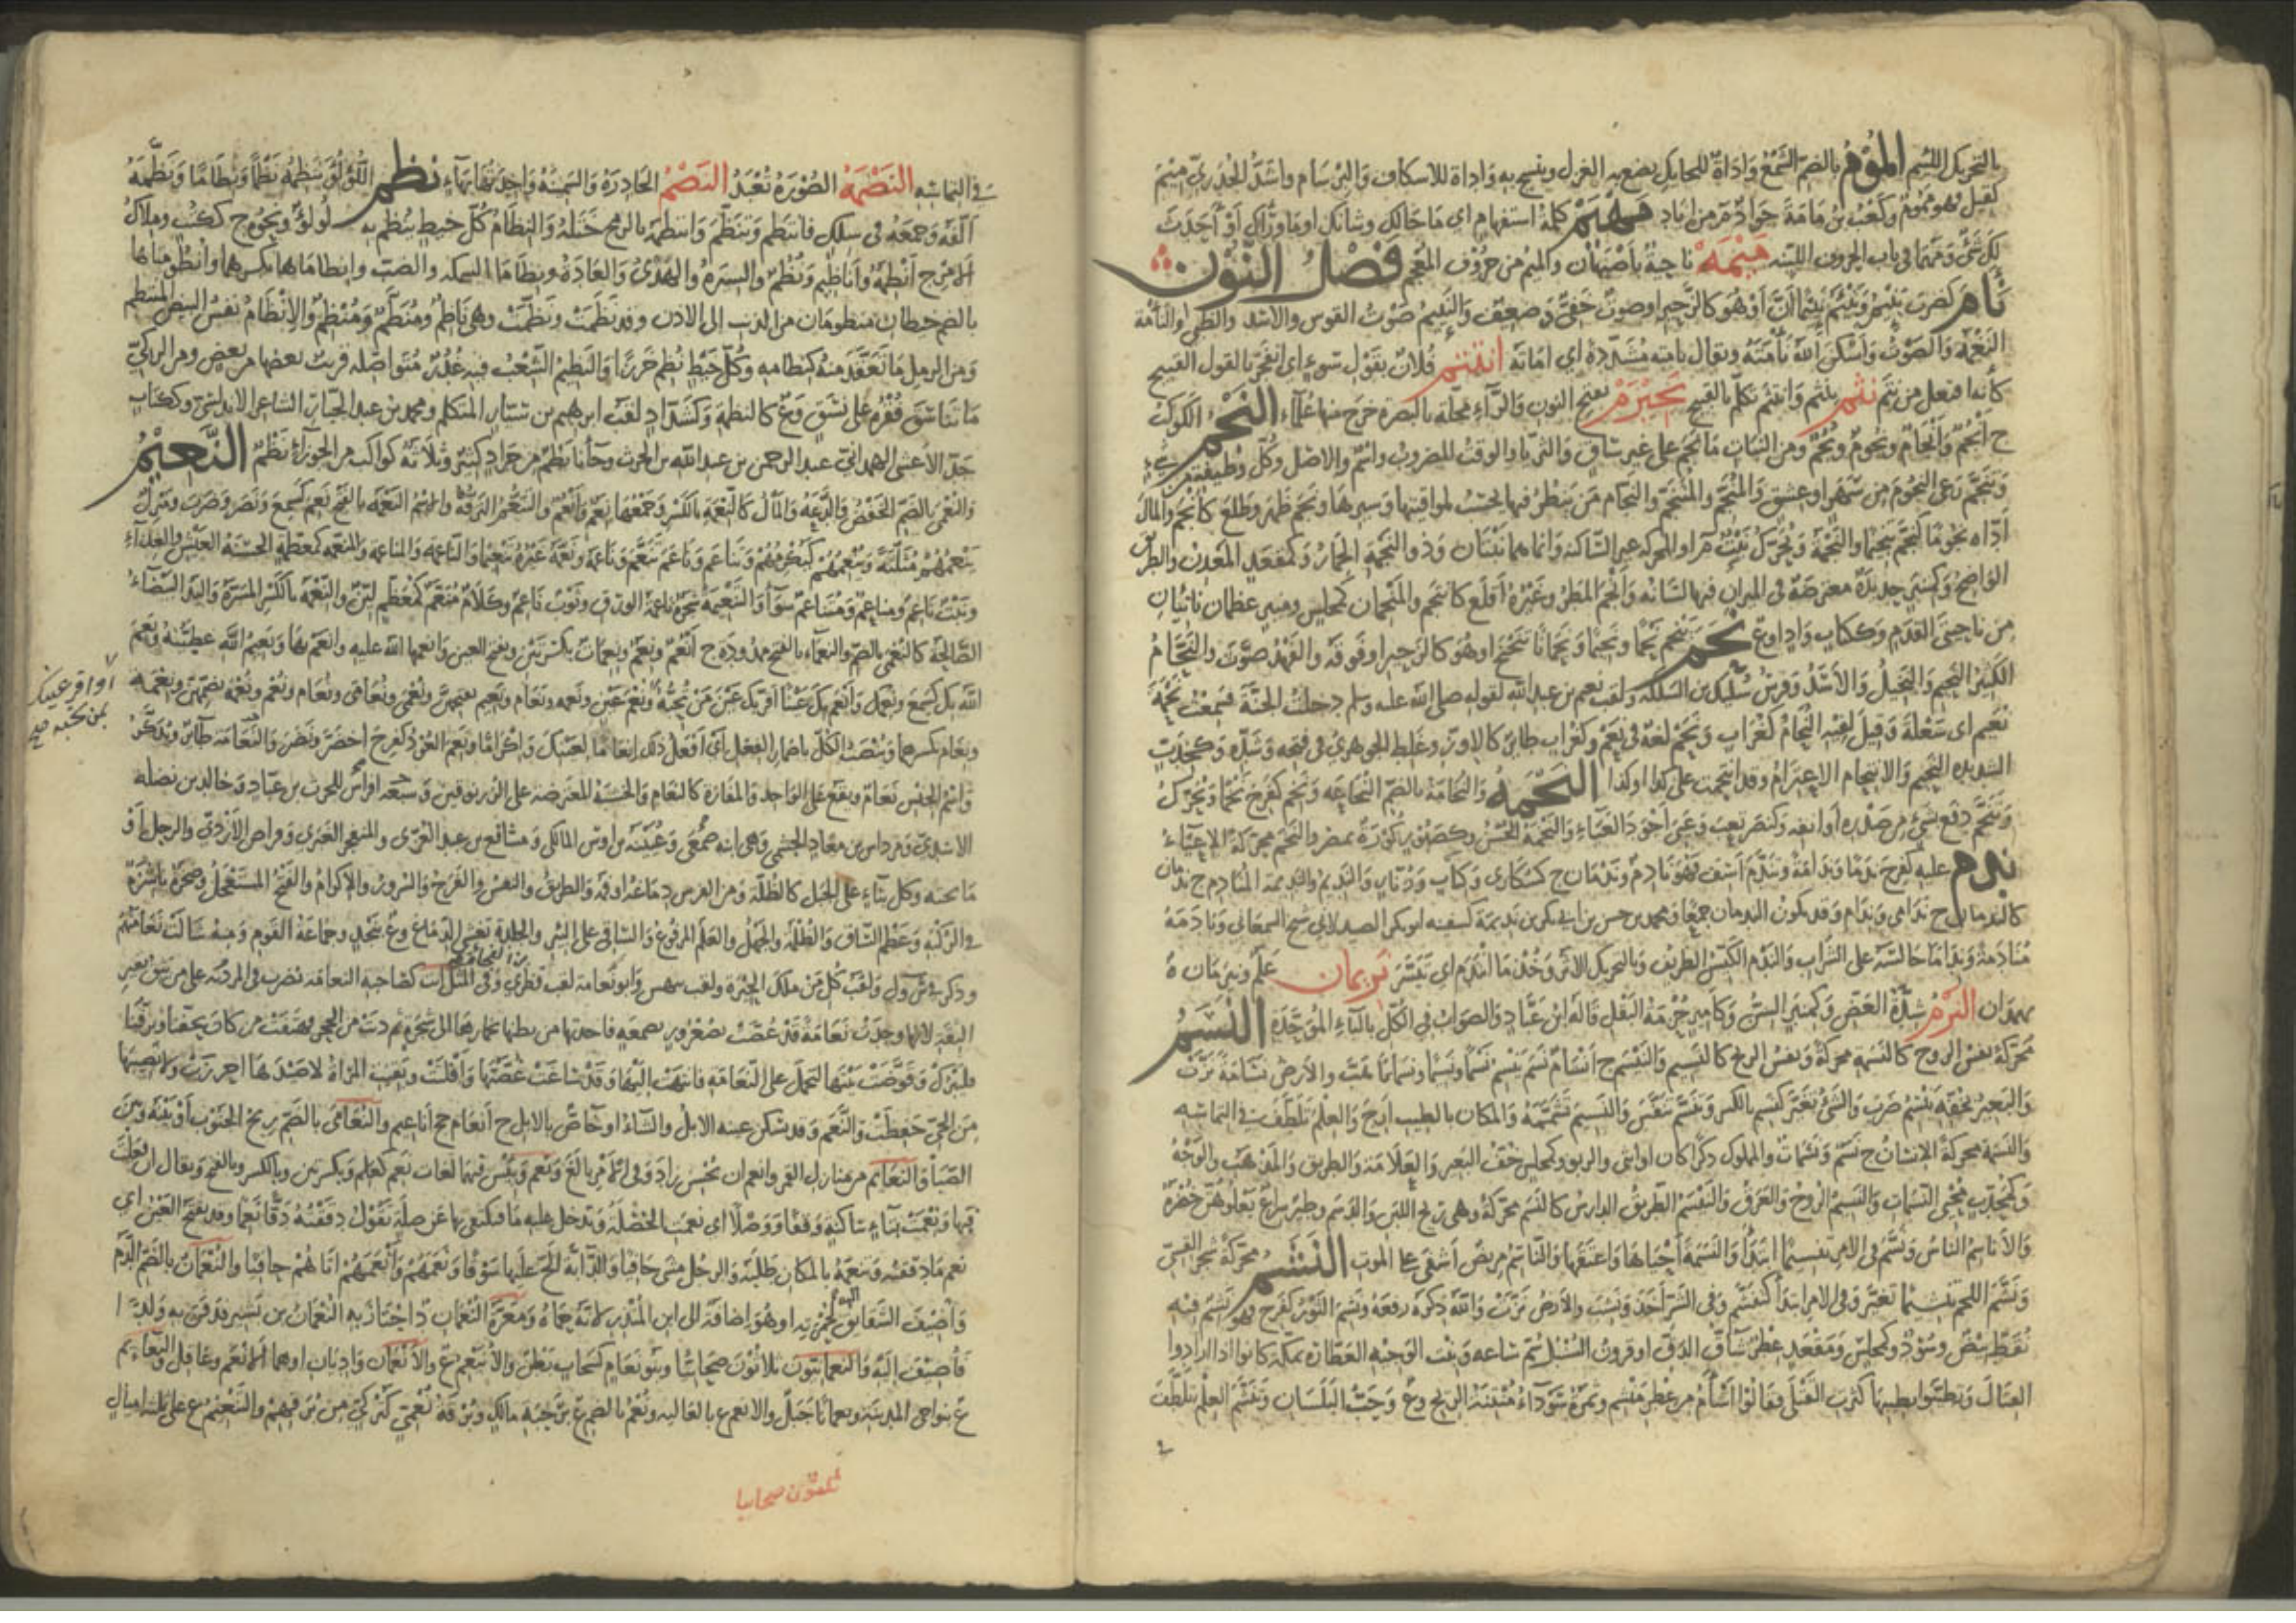 بالتحريك اللسم المُوْمُ بالضم الشمع واداة للحايك يضع به الغزل وينسج به واداة للاسكاف والبرسام واشد الجدري ميم
كقيل فهو مموم وكعب بن مامة جواد م من اياد مهيم كلمة استفهام اى ما حالك وشانك او ما وراك او أحدث
لك شئ ومهما في باب الحروف اللينة ميمه ناحية باصبهان والميم من حروف المعجم فصل النون
نأم كضرب نئيما أن او هو كالزحير او صوت خفى وضعيف والنئيم صوت القوس والاسد والظبى والنأمة
النغمة والصوت واسكن الله نأمته ويقال نامته مشددة اى اماته انتثم فلان بقول سوء اى انفجر بالقول القبيح
كأنه افتعل من نثم نثم ينثم وانتثم تكلم بالقبيح نجيرم بفتح النون والراء محلة بالبصرة خرج منها علماء النجم الكوكب
ج انجم وانجام ونجوم ونجم ومن النبات ما نجم على غير ساق والثريا والوقت المضروب واسم والاصل وكل وظيفة من شئ
وتنجم رعى النجوم من سهر او عشق والمنجم والمتنجم والنجام من ينظر فيها بحسب مواقيتها وسيرها ونجم ظهر وطلع كانجم والمال
اداه نجوما كنجم تنجيما والنجمة ويحرك نبت م او المحركة غير الساكنة وانما هما نبتان وذو النجمة الحمار وكمقعد المعدن والطريق
الواضح وكمنبر حديدة معترضة في الميزان فيها لسانه وانجم المطر وغيره اقلع كانتجم والمنجمان كمجلس ومنبر عظمان ناتيان
من ناحيتى القدم وككتاب واد او ع نحم ينحم نحما ونحيما ونحمانا تنحنح او هو كالزحير او فوقه والفهد صوت والنحام
الكثير النحيم والبخيل والاسد وفرس سليك بن السلكة ولقب نعيم بن عبد الله لقوله صلى الله عليه وسلم دخلت الجنة فسمعت نحمة
نعيم اى سعلة وقيل لقبه النحام كغراب ونحم لغة في نعم وكغراب طائر كالاوز وغلط الجوهرى في فتحه وشده وكخدب
الشديد النحيم والانتحام الاعتزام وقد انتحمت على كذا وكذا النخمه والنخامة بالضم النخاعة ونخم كفرح نخما ويحرك
وتنخم دفع شئ من صدره او انفه وكنصر لعب وغنى اجود الغناء والنخمة الحسن وكصبور كورة بمصر والنخم محركة الاعياء
ندم عليه كفرح ندما وندامة وتندم اسف فهو نادم وندمان ج كسكارى وكتاب وزنار والنديم والنديمة المنادم ج ندمان
كالندمان ج ندامى وندام وقد يكون الندمان جمعا ومحمد بن حسن بن ابى بكر بن نديمة كسفينة ابو بكر الصيدلانى شيخ السمعانى ونادمه
منادمة ونداما جالسه على الشراب والندم الكيس الظريف وبالتحريك الاثر وخذ ما انتدم اى تيسر نريمان علم ونيرمان ة
بهمدان النزم شدة العض وكمنبر السن وكامير حزمة البقل قاله ابن عباد والصواب في الكل بالباء الموحدة النسم
محركة نفس الروح كالنسمة محركة ونفس الريح كالنسيم والنيسم ج انسام نسم ينسم نسما ونسيما ونسمانا هبت والارض نسامة نزت
والبعير بخفه ينسم ضرب والشئ تغير كنسم بالكسر وتنسم تنفس والنسيم تشممه والمكان بالطيب ارج والعلم تلطف في التماسه
والنسمة محركة الانسان ج نسم ونسمات والمملوك ذكرا كان او انثى والربو وكمجلس خف البعير والعلامة والطريق والمذهب والوجه
وكمحدث محيى النسمات والنسيم الروح والعرق والنيسم الطريق الدارس كالنسم محركة وهى ريح اللبن والدسم وطير سراع تعلوهن خضرة
والاناسم الناس ونسم في الامر تنسيما ابتدأ والنسمة احياها واعتقها والناسم مريض اشفى على الموت النشم محركة شجر القسى
ونشم اللحم تنشيما تغير وفى الامر ابتدأ كتنشم وفى الشر اخذ ونشب والارض نزت والله ذكره رفعه ونشم الثور كفرح فهو نشم فيه
نقط بيض وسود وكمجلس ومقعد عطر شاق الدق او قرون السنبل سم ساعة وبنت الوجيه العطارة بمكة كانوا اذا ارادوا
القتال وتطيبوا بطيبها كثرت القتلى فقالوا اشأم من عطر منشم وثمرة سوداء منتنة الريح وع وحب البلسان وتنشم العلم تلطف
في التماسه النصمه الصورة تعبد النضم الحادرة والسمينة واحدتها بهاء نظم اللؤلؤ ينظمه نظما ونظاما ونظمه
الفه وجمعه في سلك فانتظم وتنظم وانتظمه بالرمح ختله والنظام كل خيط ينظم به لؤلؤ ونحوه ج ككتب وملاك
الامر ج انظمة واناظيم ونظم والسيرة والهدى والعادة ونظاما السمكة والضب وانظاماهما بكسرهما وانظومتاهما
بالضم خيطان منظومان من الذنب الى الاذن وقد نظمت ونظمت وهى ناظم ومنظم ومنظم والانظام نفس البيض المنتظم
ومن الرمل ما تعقد منه كنظامه وكل خيط نظم خرزا والنظيم الشعب فيه غدر متواصلة قريب بعضها من بعض ومن الركى
ما تناسق فقره على نسق وع كالنظمة وكشداد لقب ابرهيم بن سيار المتكلم ومحمد بن عبد الجبار الشاعر الاندلسى وككتاب
جد الاعشى الهمدانى عبد الرحمن بن عبد الله بن الحرث وجأنا نظم من جراد كثير وثلاثة كواكب من الجوزاء نظم النعيم
والنعمى بالضم الخفض والدعة والمال كالنعمة بالكسر وجمعها نعم وانعم والتنعم الترفه والاسم النعمة بالفتح نعم كسمع ونصر وضرب ومنزل
ينعمهم مثلثة وينعمهم كيكرمهم وتناعم وناعم تنعم وناعمة ونعمة غيره تنعيما والناعمة والمناعمة والمنعمة كمعظمة الحسنة العيش والغذاء
ونبت ناعم ومناعم ومتناعم سواء والتنعيمة شجرة ناعمة الورق وثوب ناعم وكلام منعم كمعظم لين والنعمة بالكسر المسرة واليد البيضاء
الصالحة كالنعمى بالضم والنعماء بالفتح ممدودة ج انعم ونعم ونعمات بكسرتين وبفتح العين وانعمها الله عليه وانعم بها ونعيم الله عطيته ونعم
الله بك كسمع ونعمك وانعم بك عينا اقر بك عين من تحبه ونعم عين ونعمة ونعام ونعيم بفتحهن ونعمى ونعامى ونعام ونعم ونعمة بضمهن ونعمة
ونعام بكسرهما وينصب الكل باضمار الفعل اى افعل ذلك انعاما لعينك واكراما ونعم العود كفرح اخضر ونضر والنعامة طائر ويذكر
واسم الجنس نعام ويقع على الواحد والمفازة كالنعام والخشبة المعترضة على الزرنوقين وسبعة افراس للحرث بن عباد وخالد بن نضلة
الاسدى ومرداس بن معاذ الجشمى وهى ابنة صمعر وعيينة بن اوس المالكى ومسافع بن عبد العزى والمنفجر الغبرى وقراض الازدى والرجل او
ما تحته وكل بناء على الجبل كالظلة ومن الفرس دماغه او فمه والطريق والنفس والفرح والسرور والاكرام والفيج المستعجل وصخرة ناشزة
في الركية وعظم الساق والظلمة والجهل والعلم المرفوع والساقى على البئر والجلدة تغشى الدماغ وع بنجد وجماعة القوم ومنه شالت نعامتهم
وذكر في ش و ل ولقب كل من ملك الحيرة ولقب بيهس وابو نعامة لقب قطرى وفى المثل انت كصاحبة النعامة يضرب في المرزئة على من يثق بغير
الثقة لانها وجدت نعامة قد غصت بصعرور بصمغة فاخذتها من بطنها بخمارها الى شجرة ثم دنت من الحى وهتفت من كان يحفنا ويرفنا
فليترك وقوضت بيتها لتحمل على النعامة فانتهت اليها وقد ساغت غصتها وافلتت وبقيت المراة لا صيدها احرزت ولا نصيبها
من الحى حفظت والنعم وقد تسكن عينه الابل والشاء او خاص بالابل ج انعام جج اناعيم والنعامى بالضم ريح الجنوب او بينه وبين
الصبا والنعائم من منازل القمر وانعم ان يحسن زاد وفى الامر بالغ ونعم وبئس فيهما لغات نعم كعلم وبكسرتين وبالكسر وبالفتح ويقال ان فعلت
فبها ونعمت بتاء ساكنة وقفا ووصلا اى نعمت الخصلة وتدخل عليه ما فيكتفى بها عن صلة تقول دققته دقا نعما وقد تفتح العين اى
نعم ما دققته وتنعمه بالمكان طلبه والرجل مشى حافيا والدابة الح عليها سوقا ونعمهم وانعمهم اتاهم حافيا والنعمان بالضم الدم
واضيف الشقائق اليه لحمرته او هو اضافة الى ابن المنذر لانه حماه ومعرة النعمان د اجتاز به النعمان بن بشير فدفن به ولدا
فاضيف اليه والنعمانون ثلاثون صحابيا وبنو نعام كسحاب بطن والانيعم ع والانعمان واديان او هما الانعم وعاقل والنعائم
ع بنواحى المدينة ونعمايا جبل والانعم ع بالعالية ونعم بالضم ع برحبة مالك وبرقة نعمى كتركى من برقهم والتنعيم ع على ثلثة اميال
او اقر عينك
بمن تحبه صح
ثلثون صحابيا